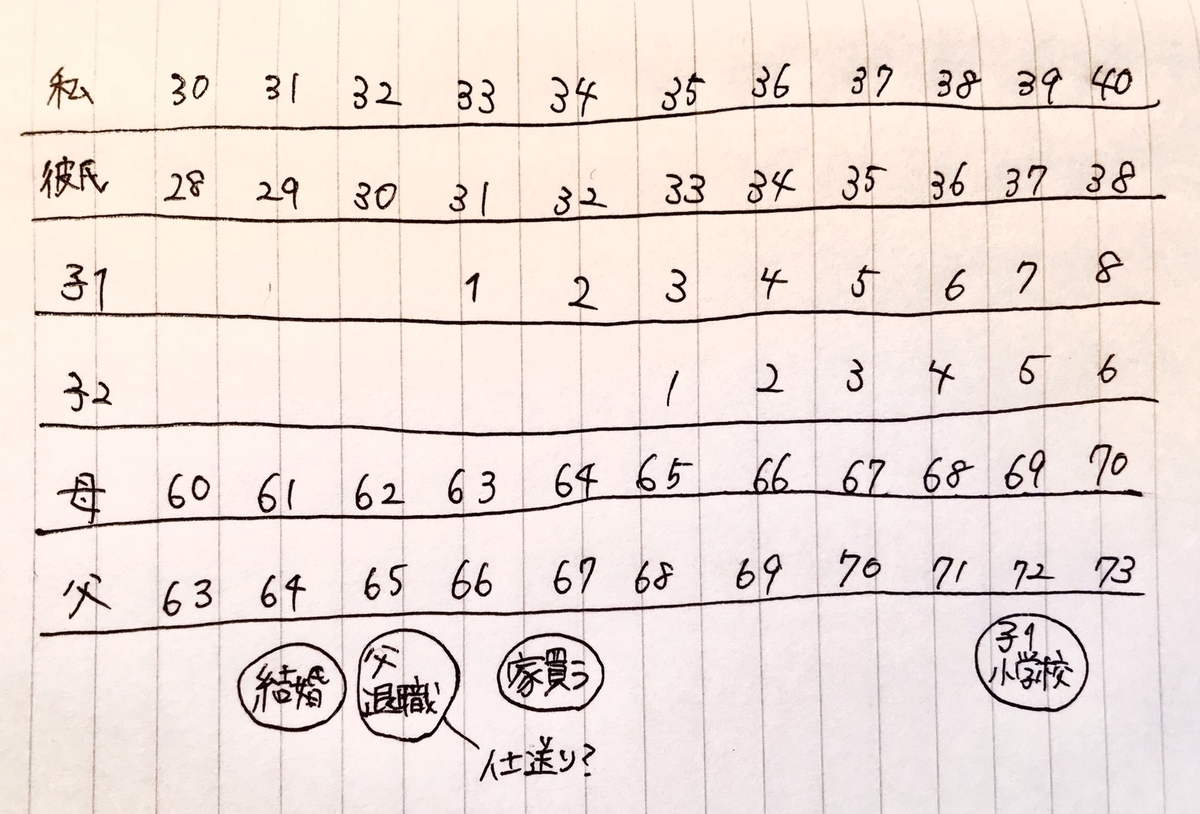 私 30 31 32 33 34 35 36 37 38 39 40
彼氏 28 29 30 31 32 33 34 35 36 37 38
子1 1 2 3 4 5 6 7 8
子2 1 2 3 4 5 6
母 60 61 62 63 64 65 66 67 68 69 70
父 63 64 65 66 67 68 69 70 71 72 73
結婚
父
退職
家買う
子1
小学校
仕送り?